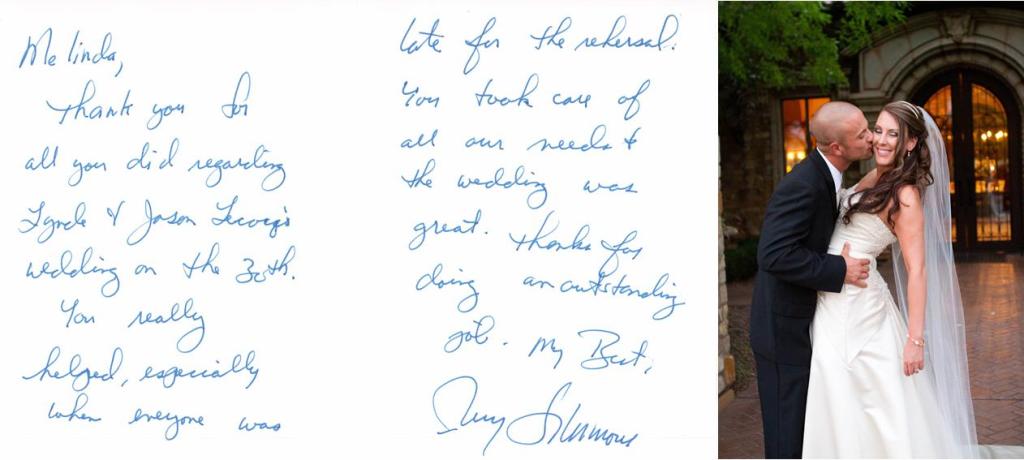 Melinda,
Thank you for
all you did regarding
Lynde & Jason
wedding on the 30th.
You really
helped, especially
when everyone was
late for the rehersal.
You took care of
all our needs &
the wedding was
great. Thanks for
doing an outstanding
job. My Best,